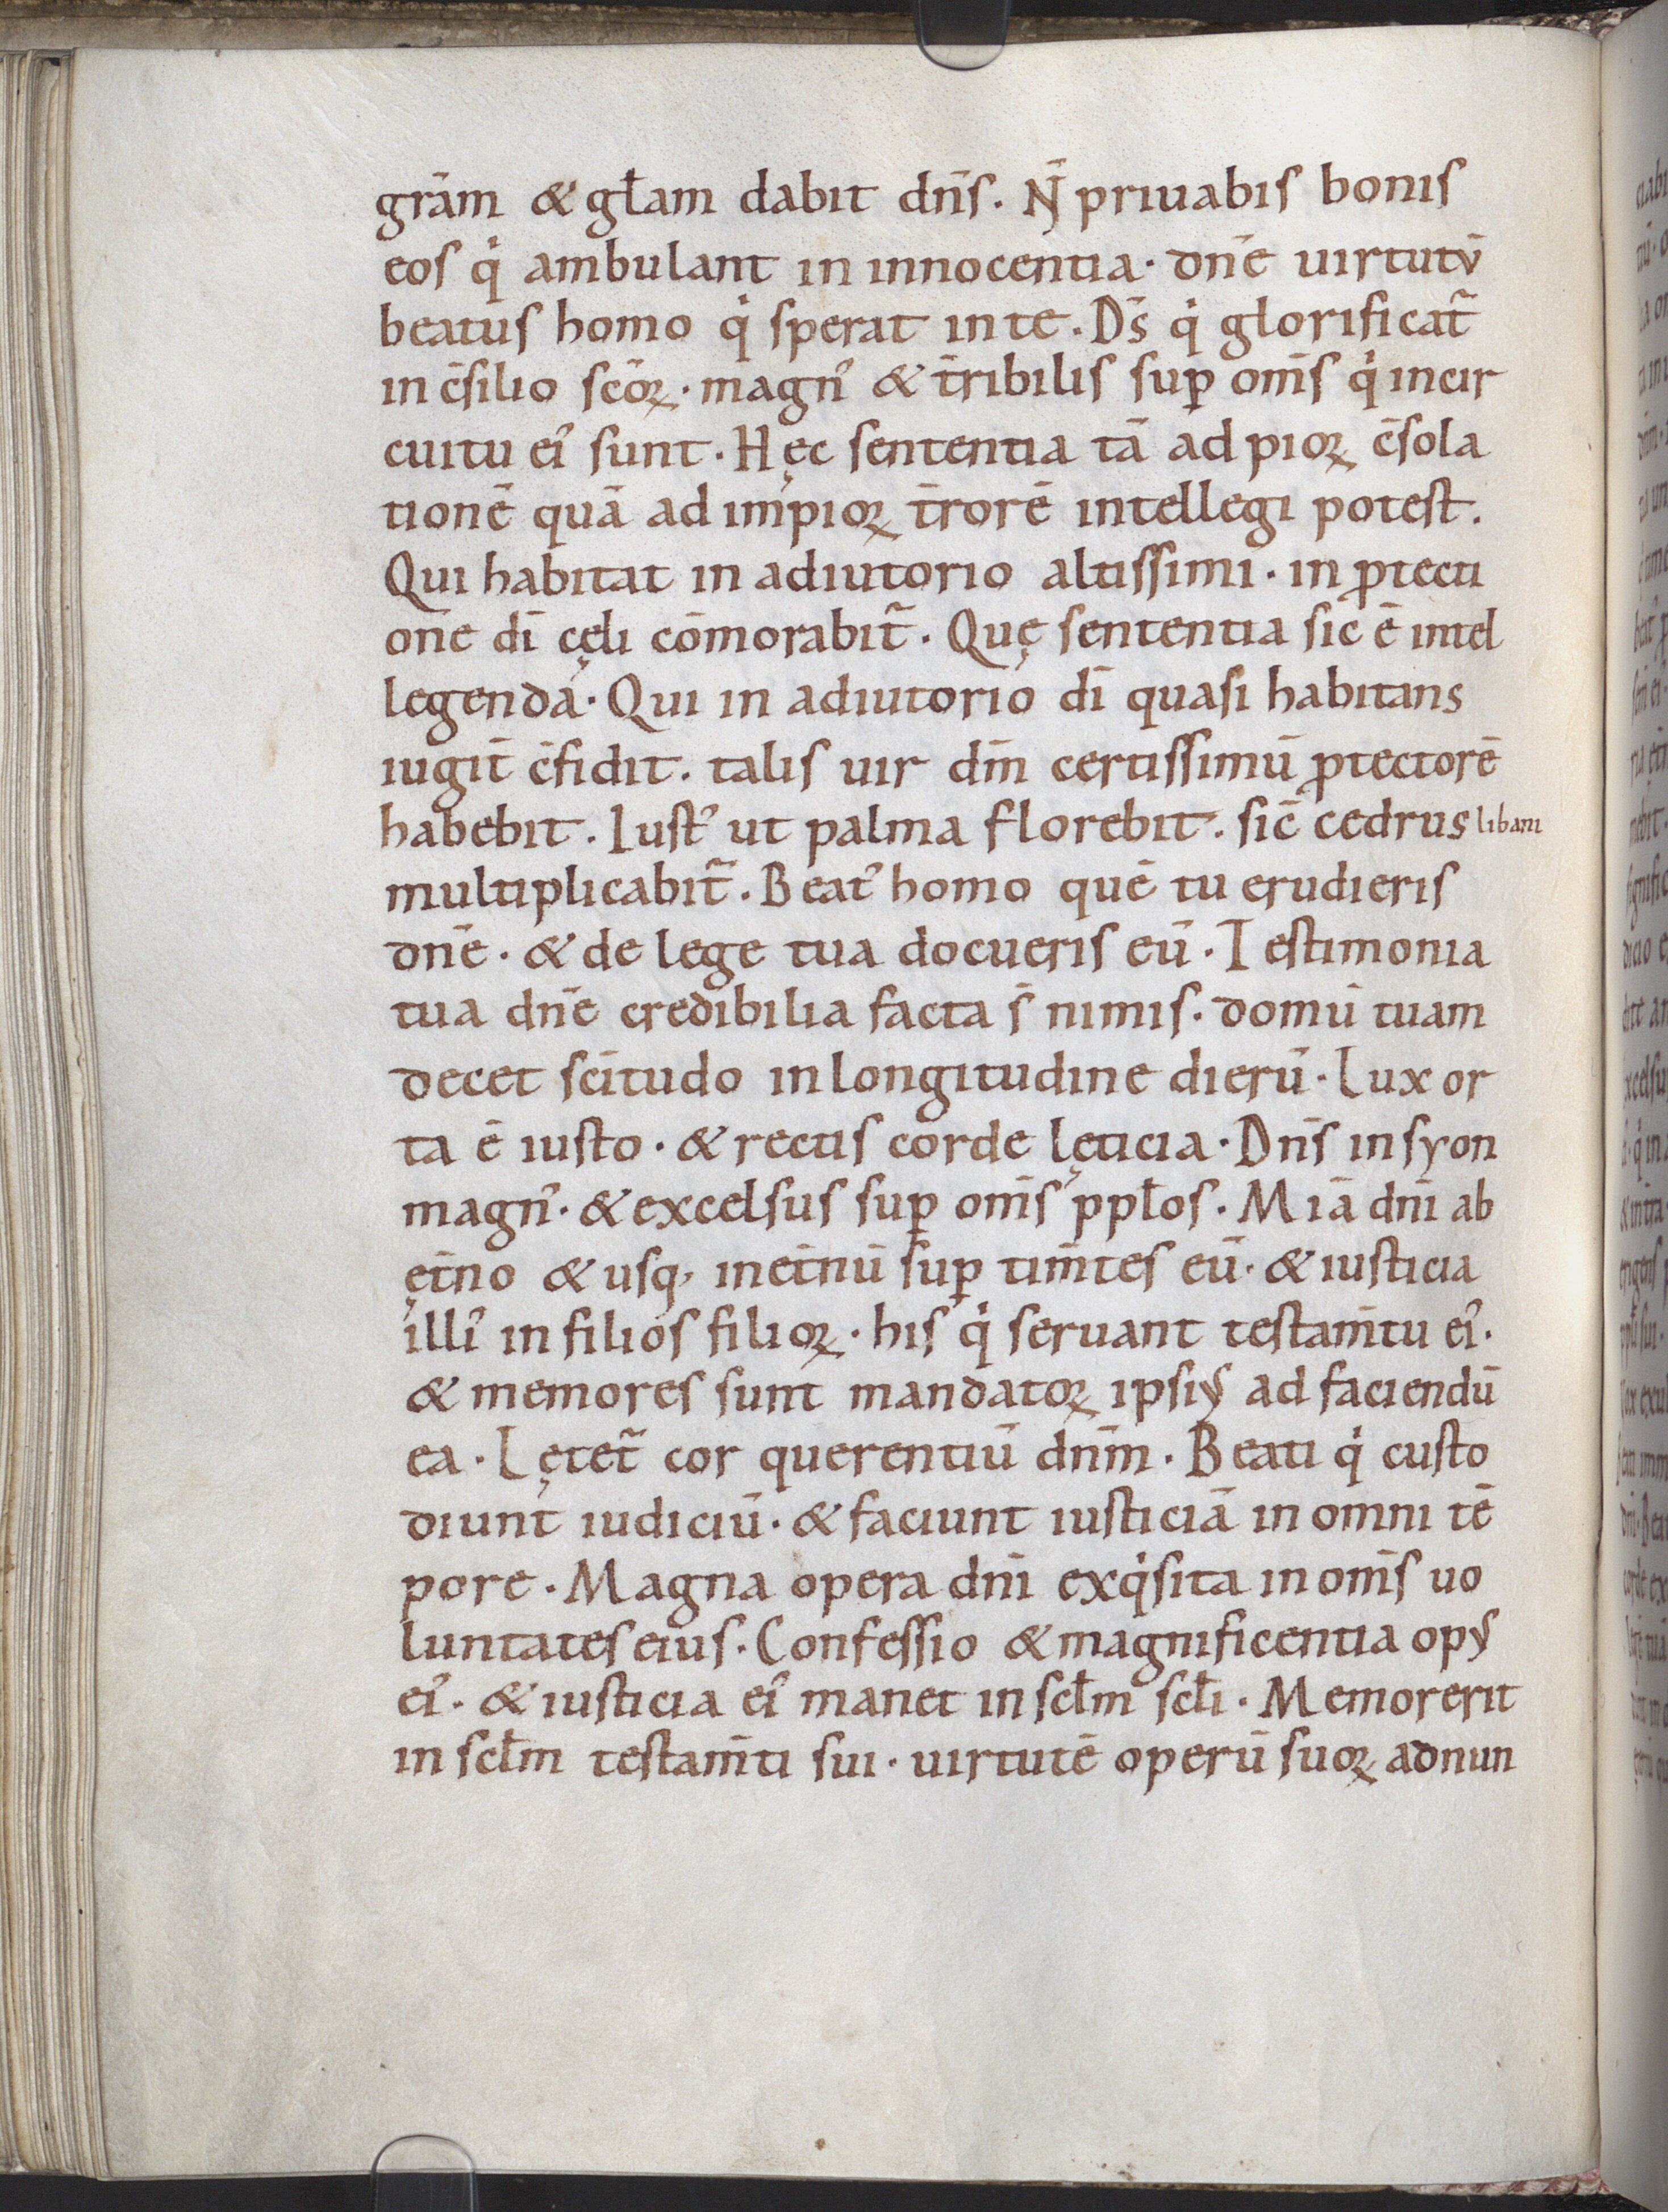 grām & gƚam dabit dn̄s. N̄ priuabis bonis
eos q̇ ambulant in innocentia· dn̄e uirtutv̄
beatus homo q̇ sperat in te. Ds̄ q̇ glorificat᷉
in c̄silio sc̄oꝝ· magn᾽ & t̄ribilis suꝑ om̄s q̇ incir
cuitu ei᾽ sunt. Hęc sententia tā ad pioꝝ c̄sola
tionē quā ad impioꝝ t̄rorē intellegi potest.
Qui habitat in adiutorio altissimi· in ꝓtecti
one dī cęli cōmorabit᷉. Quę sententia sic ē intel
legenda· Qui in adiutorio dī quasi habitans
iugit̄ c̄fidit. talis uir dm̄ certissimū ꝓtectorē
habebit. Iust᾽ ut palma florebit. sic̄ cedrus libani
multiplicabit᷉. Beat᾽ homo quē tu erudieris
dn̄e· & de lege tua docueris eū. Testimonia
tua dn̄e credibilia facta s̄ nimis. domū tuam
decet sc̄itudo in longitudine dierū· Lux or
ta ē iusto· & rectis corde lęticia· Dn̄s in syon
magn᾽· & excelsus suꝑ om̄s ppƚos. Miā dn̄i ab
ęt̄no & usq, in et̄nū suꝑ tim̄tes eū· & iusticia
illi᾽ in filios filioꝝ· his q̇ seruant testam̄tu ei᾽·
& memores sunt mandatoꝝ ipsiꝰ ad faciendū
ea. Lętet᷉ cor querentiū dn̄m. Beati q̇ custo
diunt iudiciū· & faciunt iusticiā in omni tē
pore. Magna opera dn̄i exq̇sita in om̄s uo
luntates eius. Confessio & magnificentia opꝰ
ei᾽· & iusticia ei᾽ manet in scƚm scƚi. Memor erit
in scƚm testam̄ti sui· uirtutē operū suoꝝ adnun